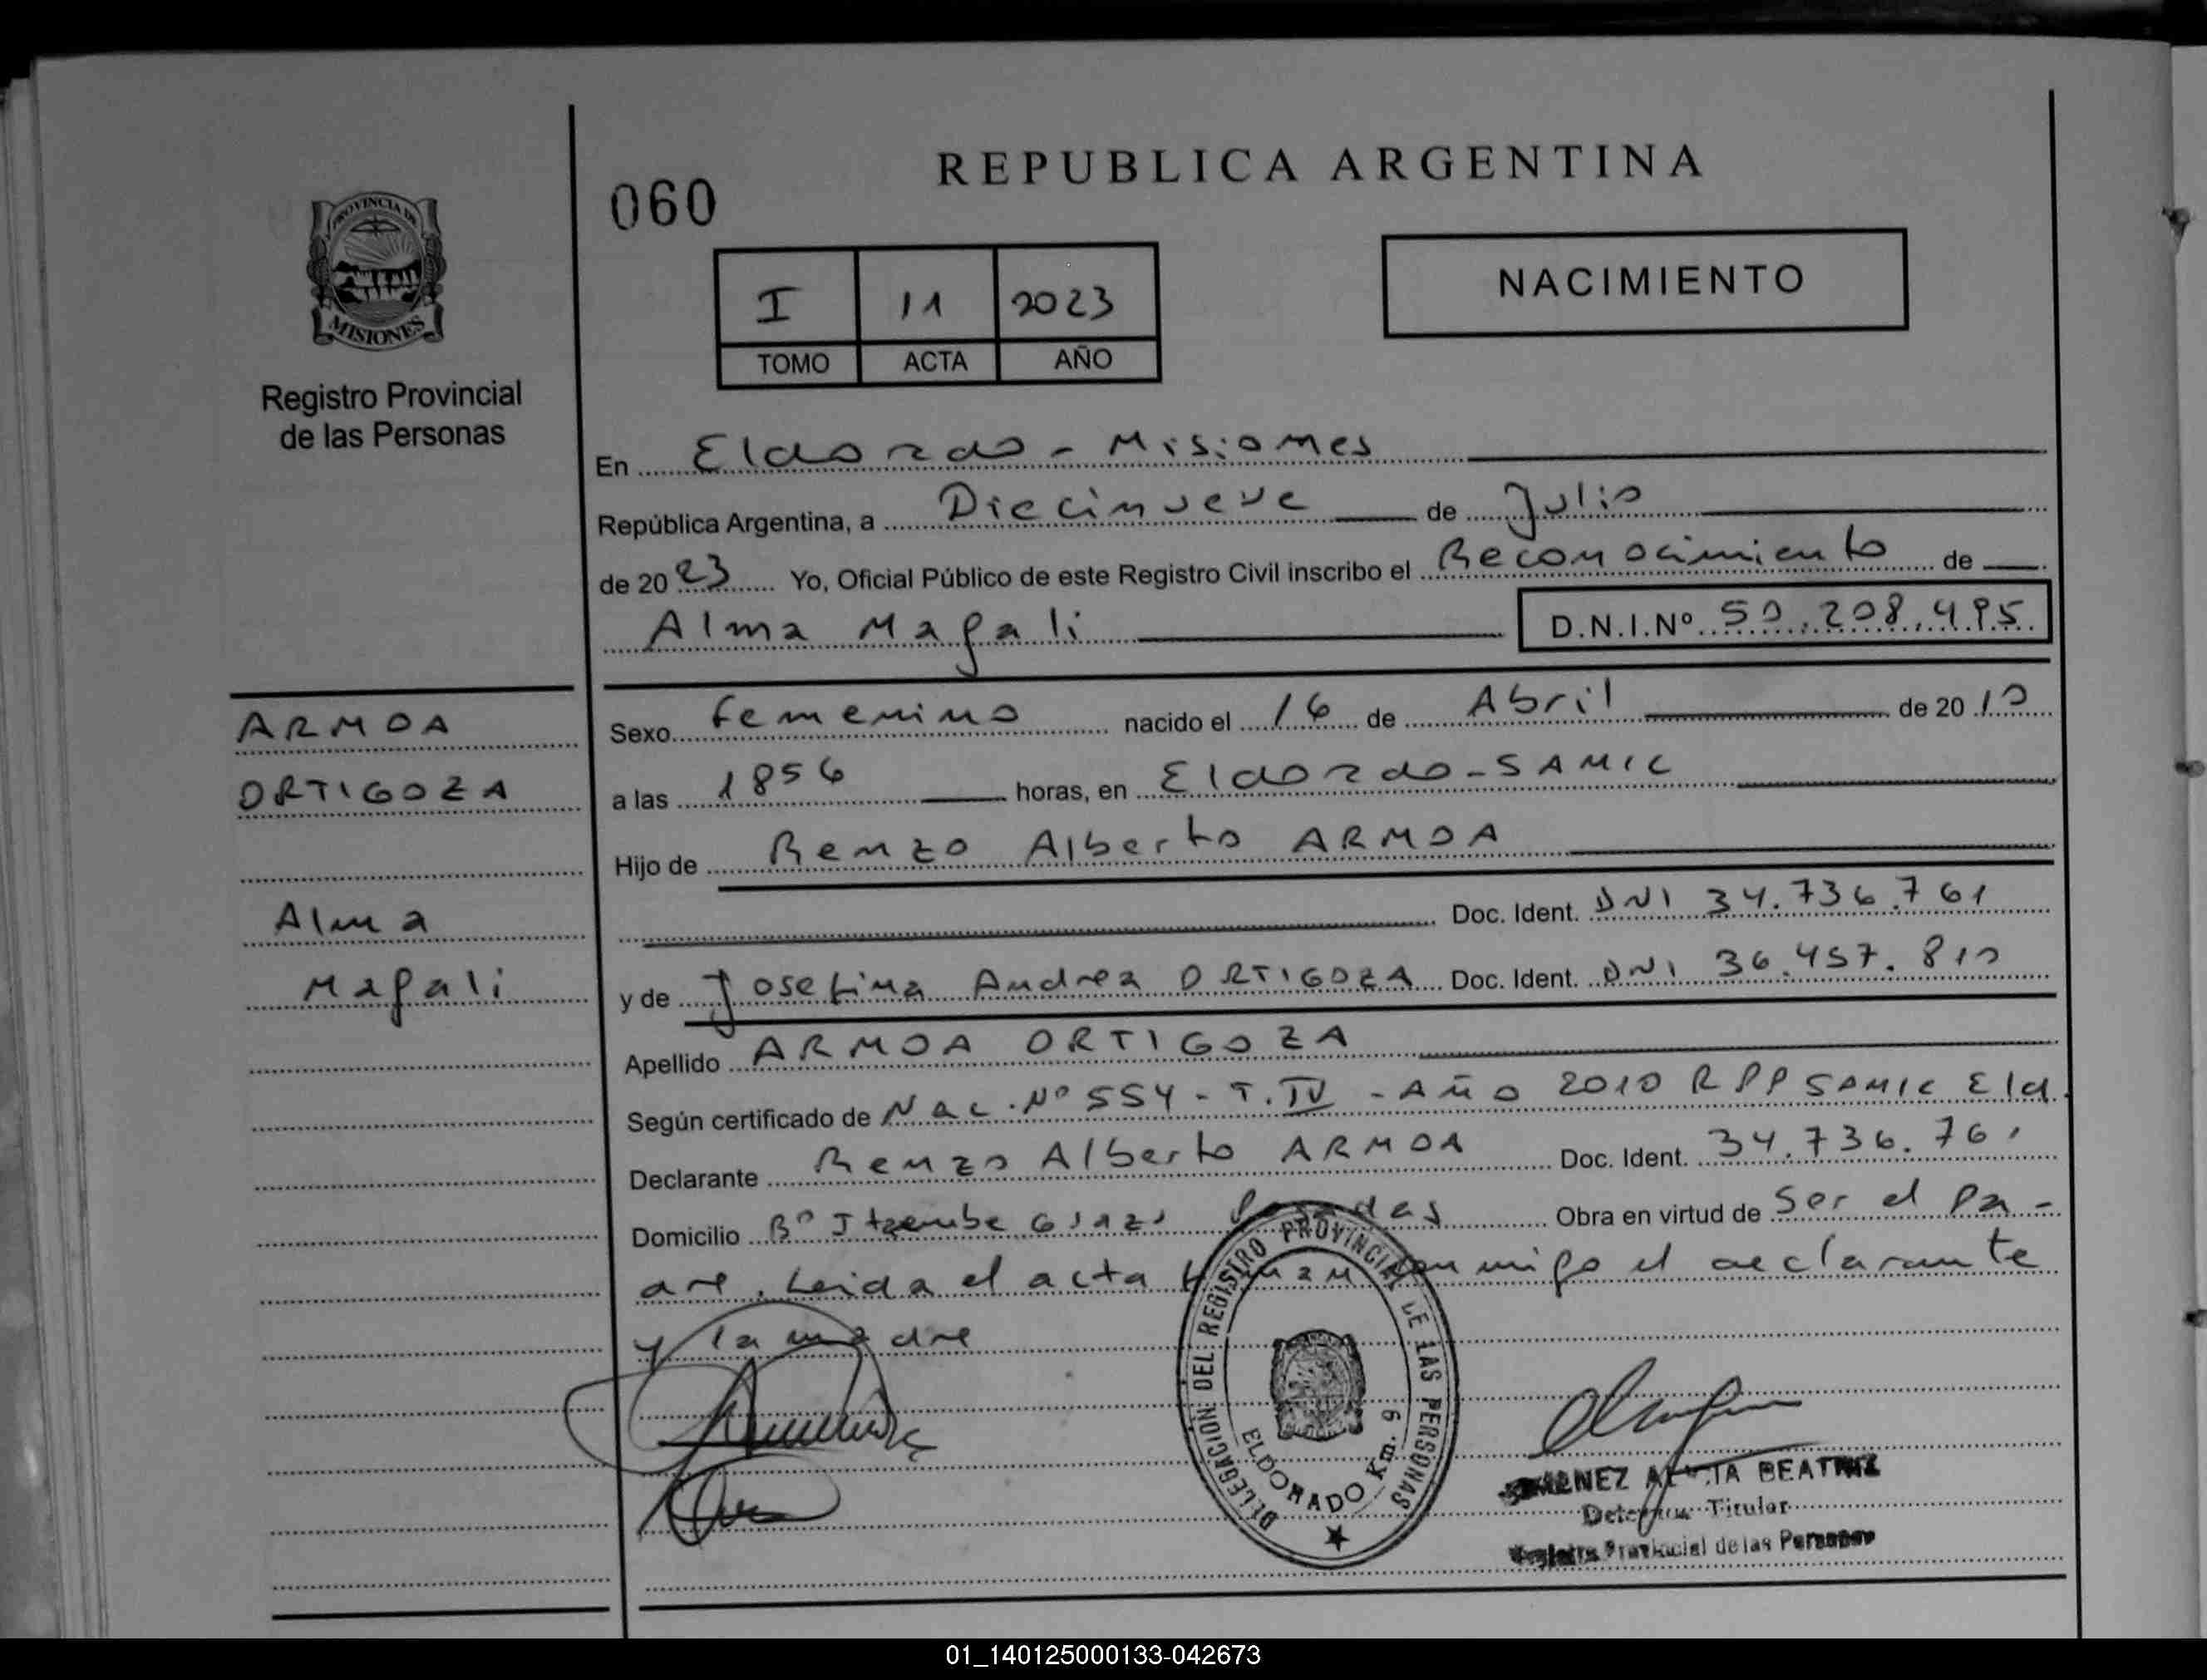 REPUBLICA ARGENTINA
060
PROVINCIA DE
MISIONES
Registro Provincial
de las Personas
I 11 2023
TOMO ACTA AÑO
NACIMIENTO
En Eldorado - Misiones
República Argentina, a Diecinueve de Julio
de 2023 Yo, Oficial Público de este Registro Civil inscribo el Reconocimiento de
Alma Magali D.N.I.Nº 50.208.495
ARMOA
ORTIGOZA
Alma
Magali
Sexo Femenino nacido el 16 de Abril de 2010
a las 1856 horas, en Eldorado - SAMIC
Hijo de Renzo Alberto ARMOA
Doc. Ident. DNI 34.736.761
y de Josefina Andrea ORTIGOZA Doc. Ident. DNI 36.457.810
Apellido ARMOA ORTIGOZA
Según certificado de Nac. Nº 554 - T. IV - Año 2010 RPP SAMIC Eld.
Declarante Renzo Alberto ARMOA Doc. Ident. 34.736.761
Domicilio Bº Itaembe Guazu Posadas Obra en virtud de Ser el pa-
dre. Leida el acta firman conmigo el declarante
y la madre
DELEGACION DEL REGISTRO PROVINCIAL DE LAS PERSONAS
ELDORADO Km. 9
BEATRIZ
Titular
Registro Provincial de las Personas
01_140125000133-042673